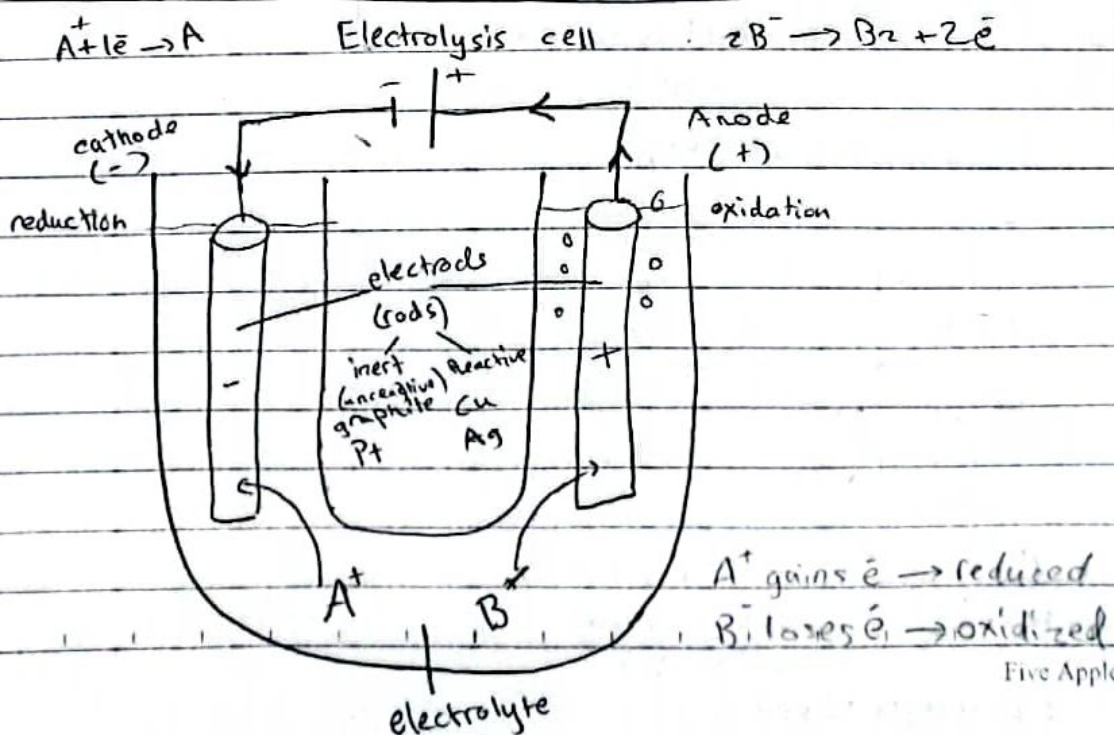 A⁺+1ē → A
Electrolysis cell
2B⁻ → B₂ + 2ē
- +
cathode
(-)
Anode
(+)
reduction
G
oxidation
electrods
(rods)
inert
(unreactive)
graphite
Pt
Reactive
Cu
Ag
-
+
A⁺
B⁻
A⁺ gains ē → reduced
B⁻ loses ē → oxidized
Five Apple
electrolyte